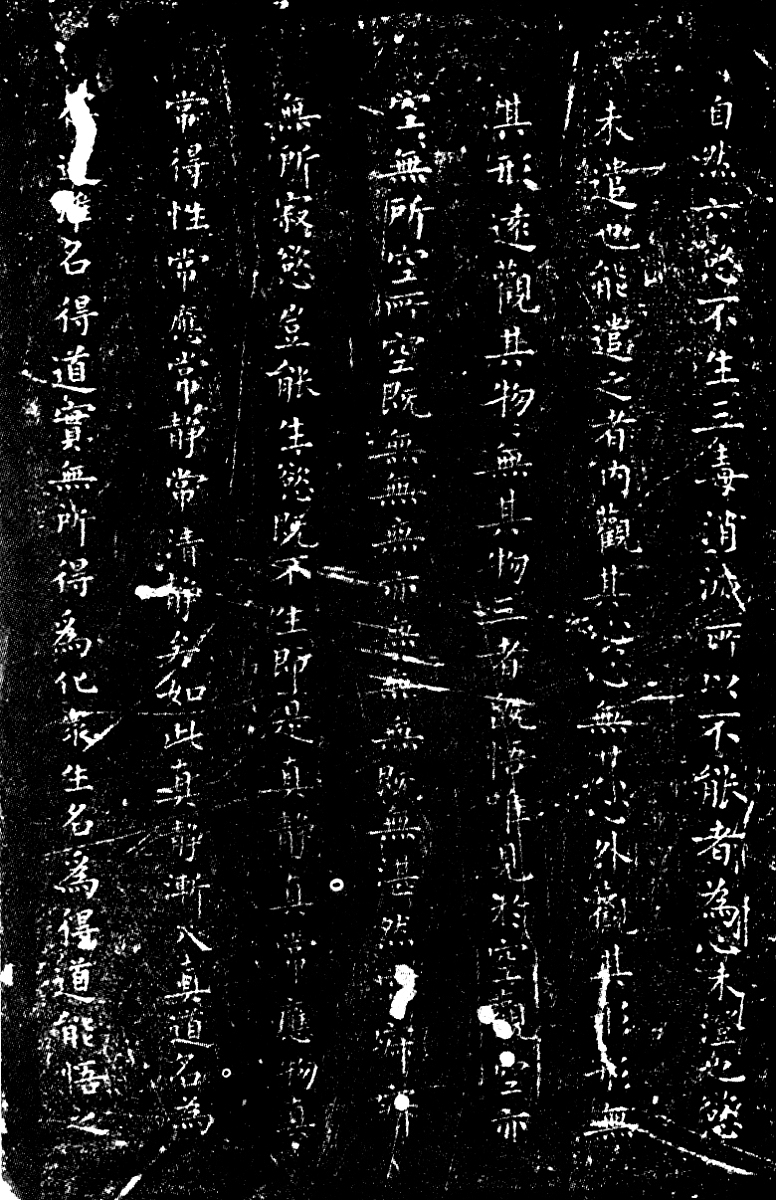 自然六慾不生三毒消滅所以不能者為心未澄也慾
未遣也能遣之者內觀其心心無其心外觀其形形無
其形遠觀其物〻無其物三者既悟唯見於空觀空亦
空〻無所空所空既無無無亦無無無既無湛然寂
無所寂慾豈能生慾既不生即是真静真常應物真
常得性常應常静常清静矣如此真静漸入真道名為
道雖名得道實無所得爲化衆生名爲得道能悟之